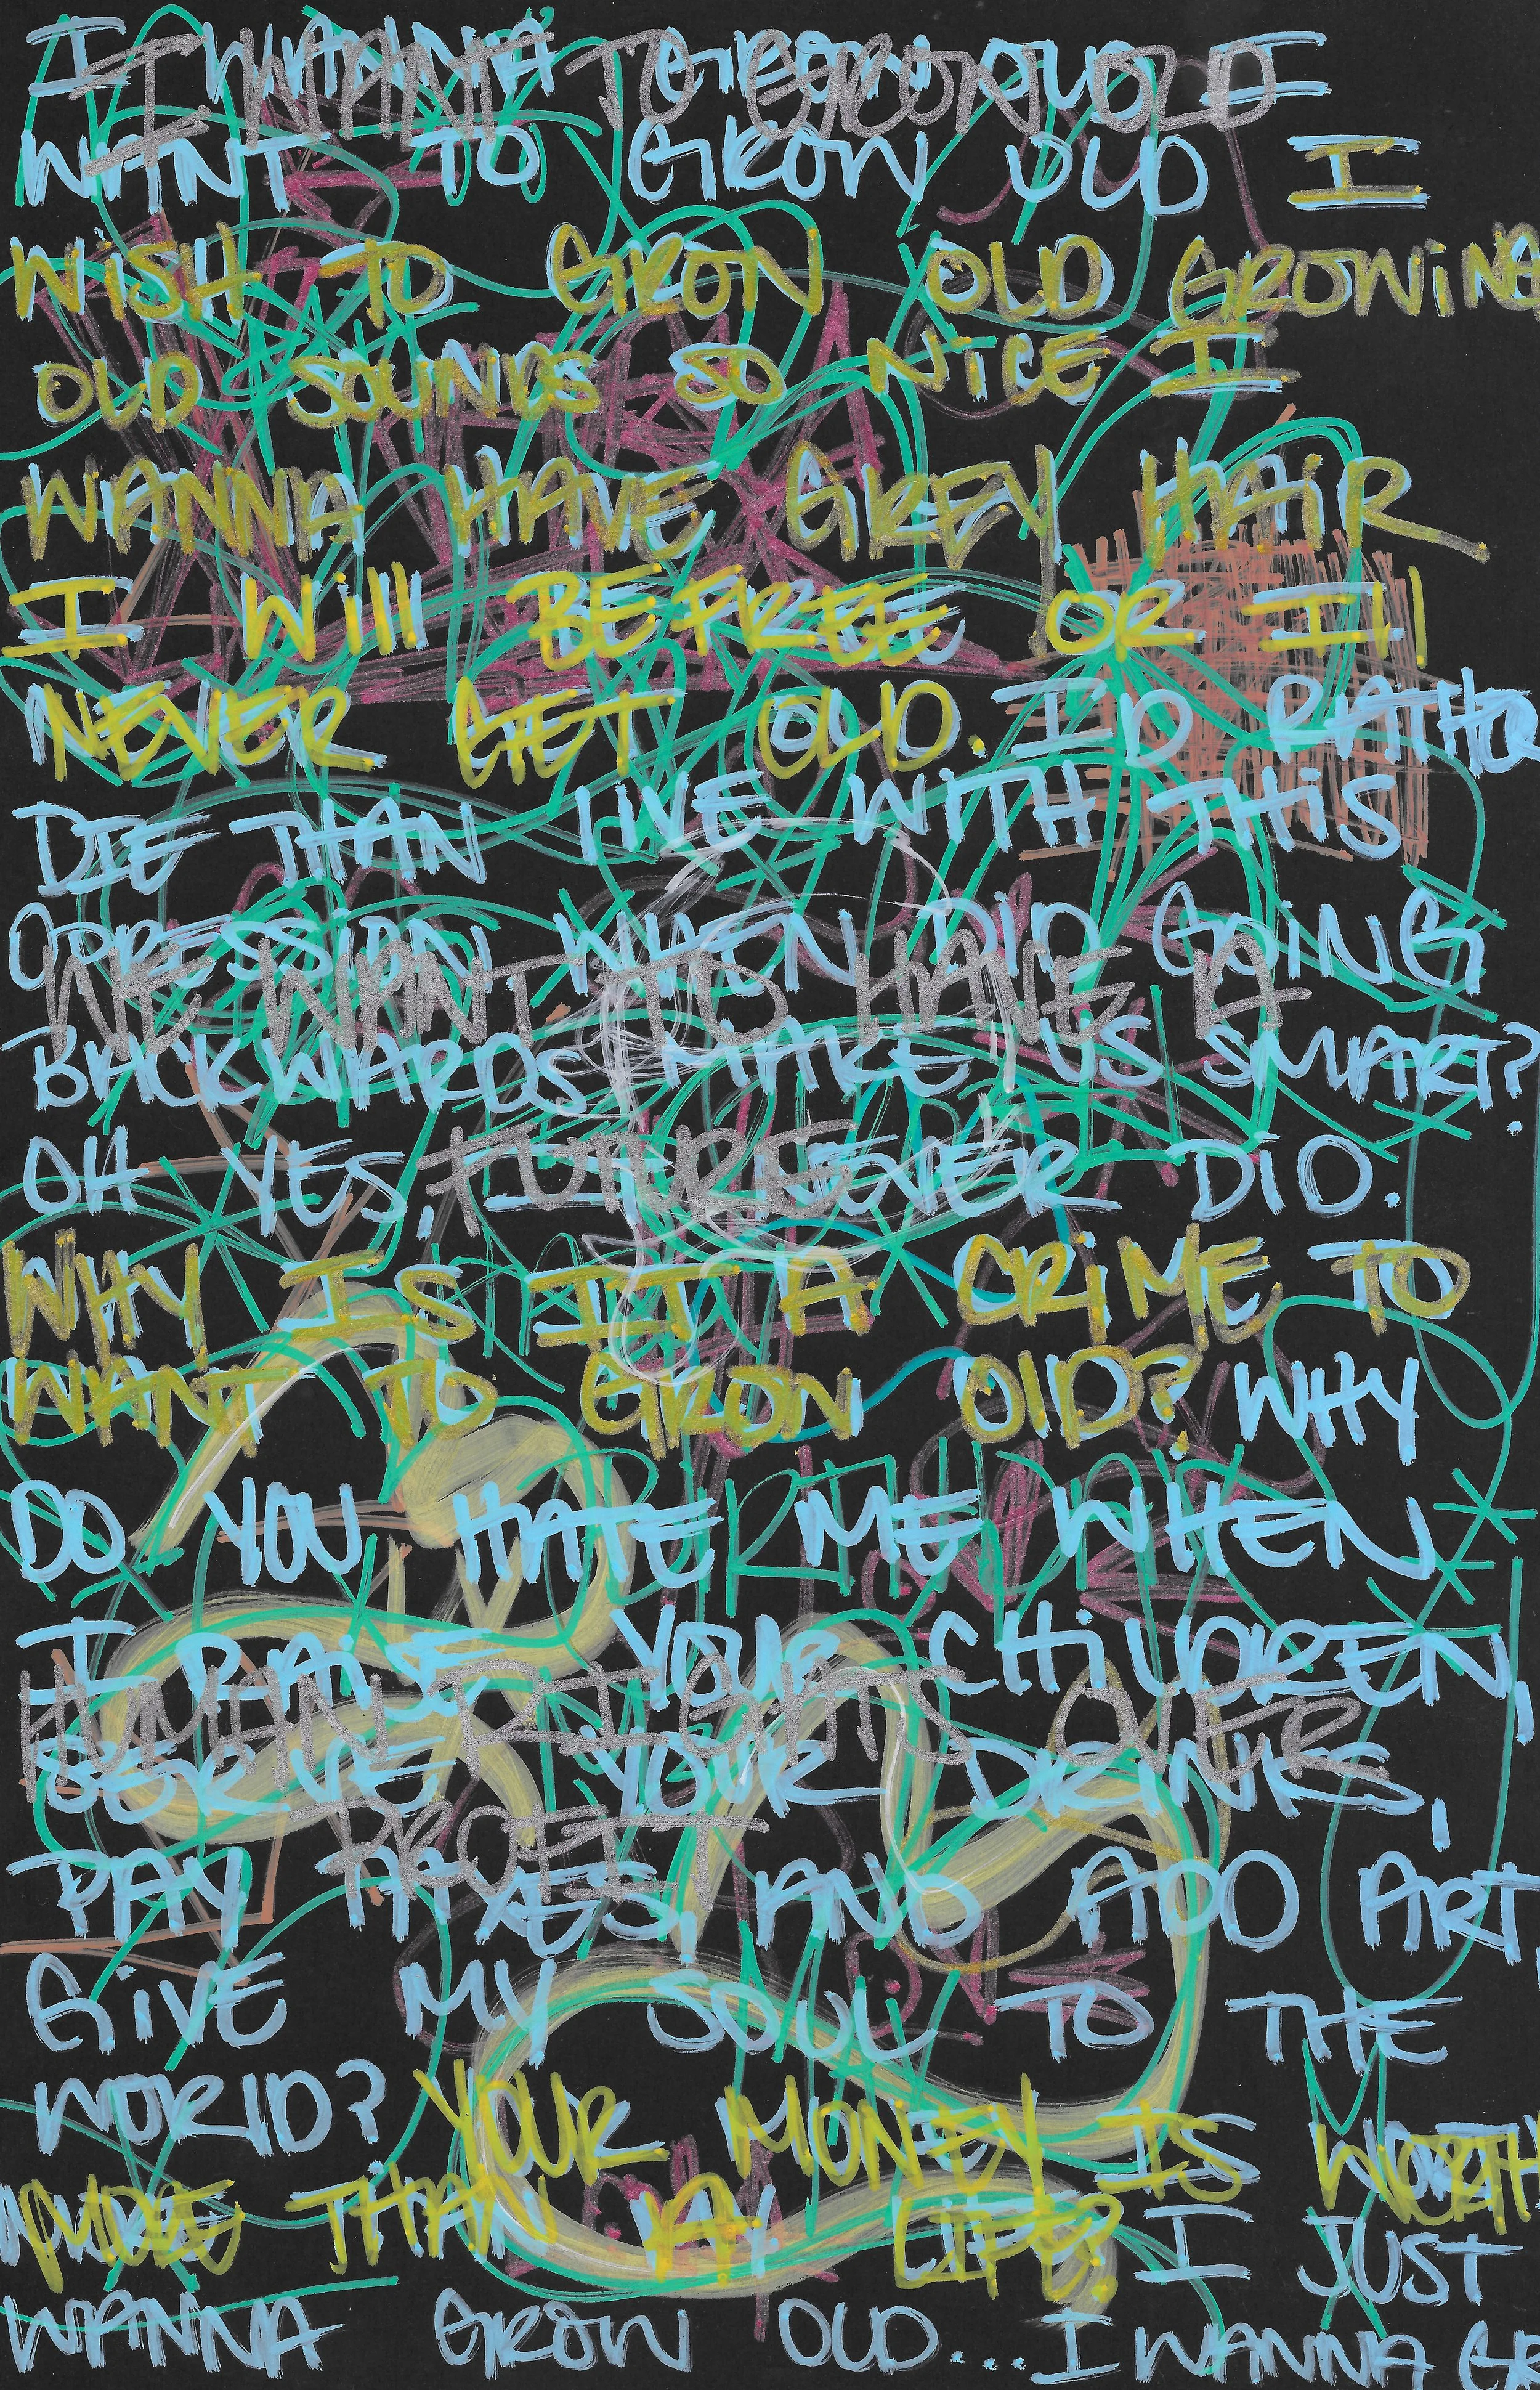 I WANNA GROW OLD I
I WANT TO GROW OLD
WANT TO GROW OLD I
WISH TO GROW OLD GROWING
OLD SOUNDS SO NICE I
WANNA HAVE GREY HAIR
I WILL BE FREE OR I'll
NEVER GET OLD. I'D RATHER
DIE THAN LIVE WITH THIS
OPRESSION WHEN DID GOING
WE WANT TO HAVE A
BACKWARDS MAKE US SMART?
OH YES, IT NEVER DID.
FUTURE
WHY IS IT A CRIME TO
WANT TO GROW OLD? WHY
DO YOU HATE ME WHEN
I RAISE YOUR CHILDREN,
HUMAN RIGHTS OVER
SERVE YOUR DRINKS,
PROFIT
PAY TAXES, AND ADD ART,
GIVE MY SOUL TO THE
WORLD? YOUR MONEY IS WORTH
MORE THAN MY LIFE? I JUST
WANNA GROW OLD... I WANNA GR